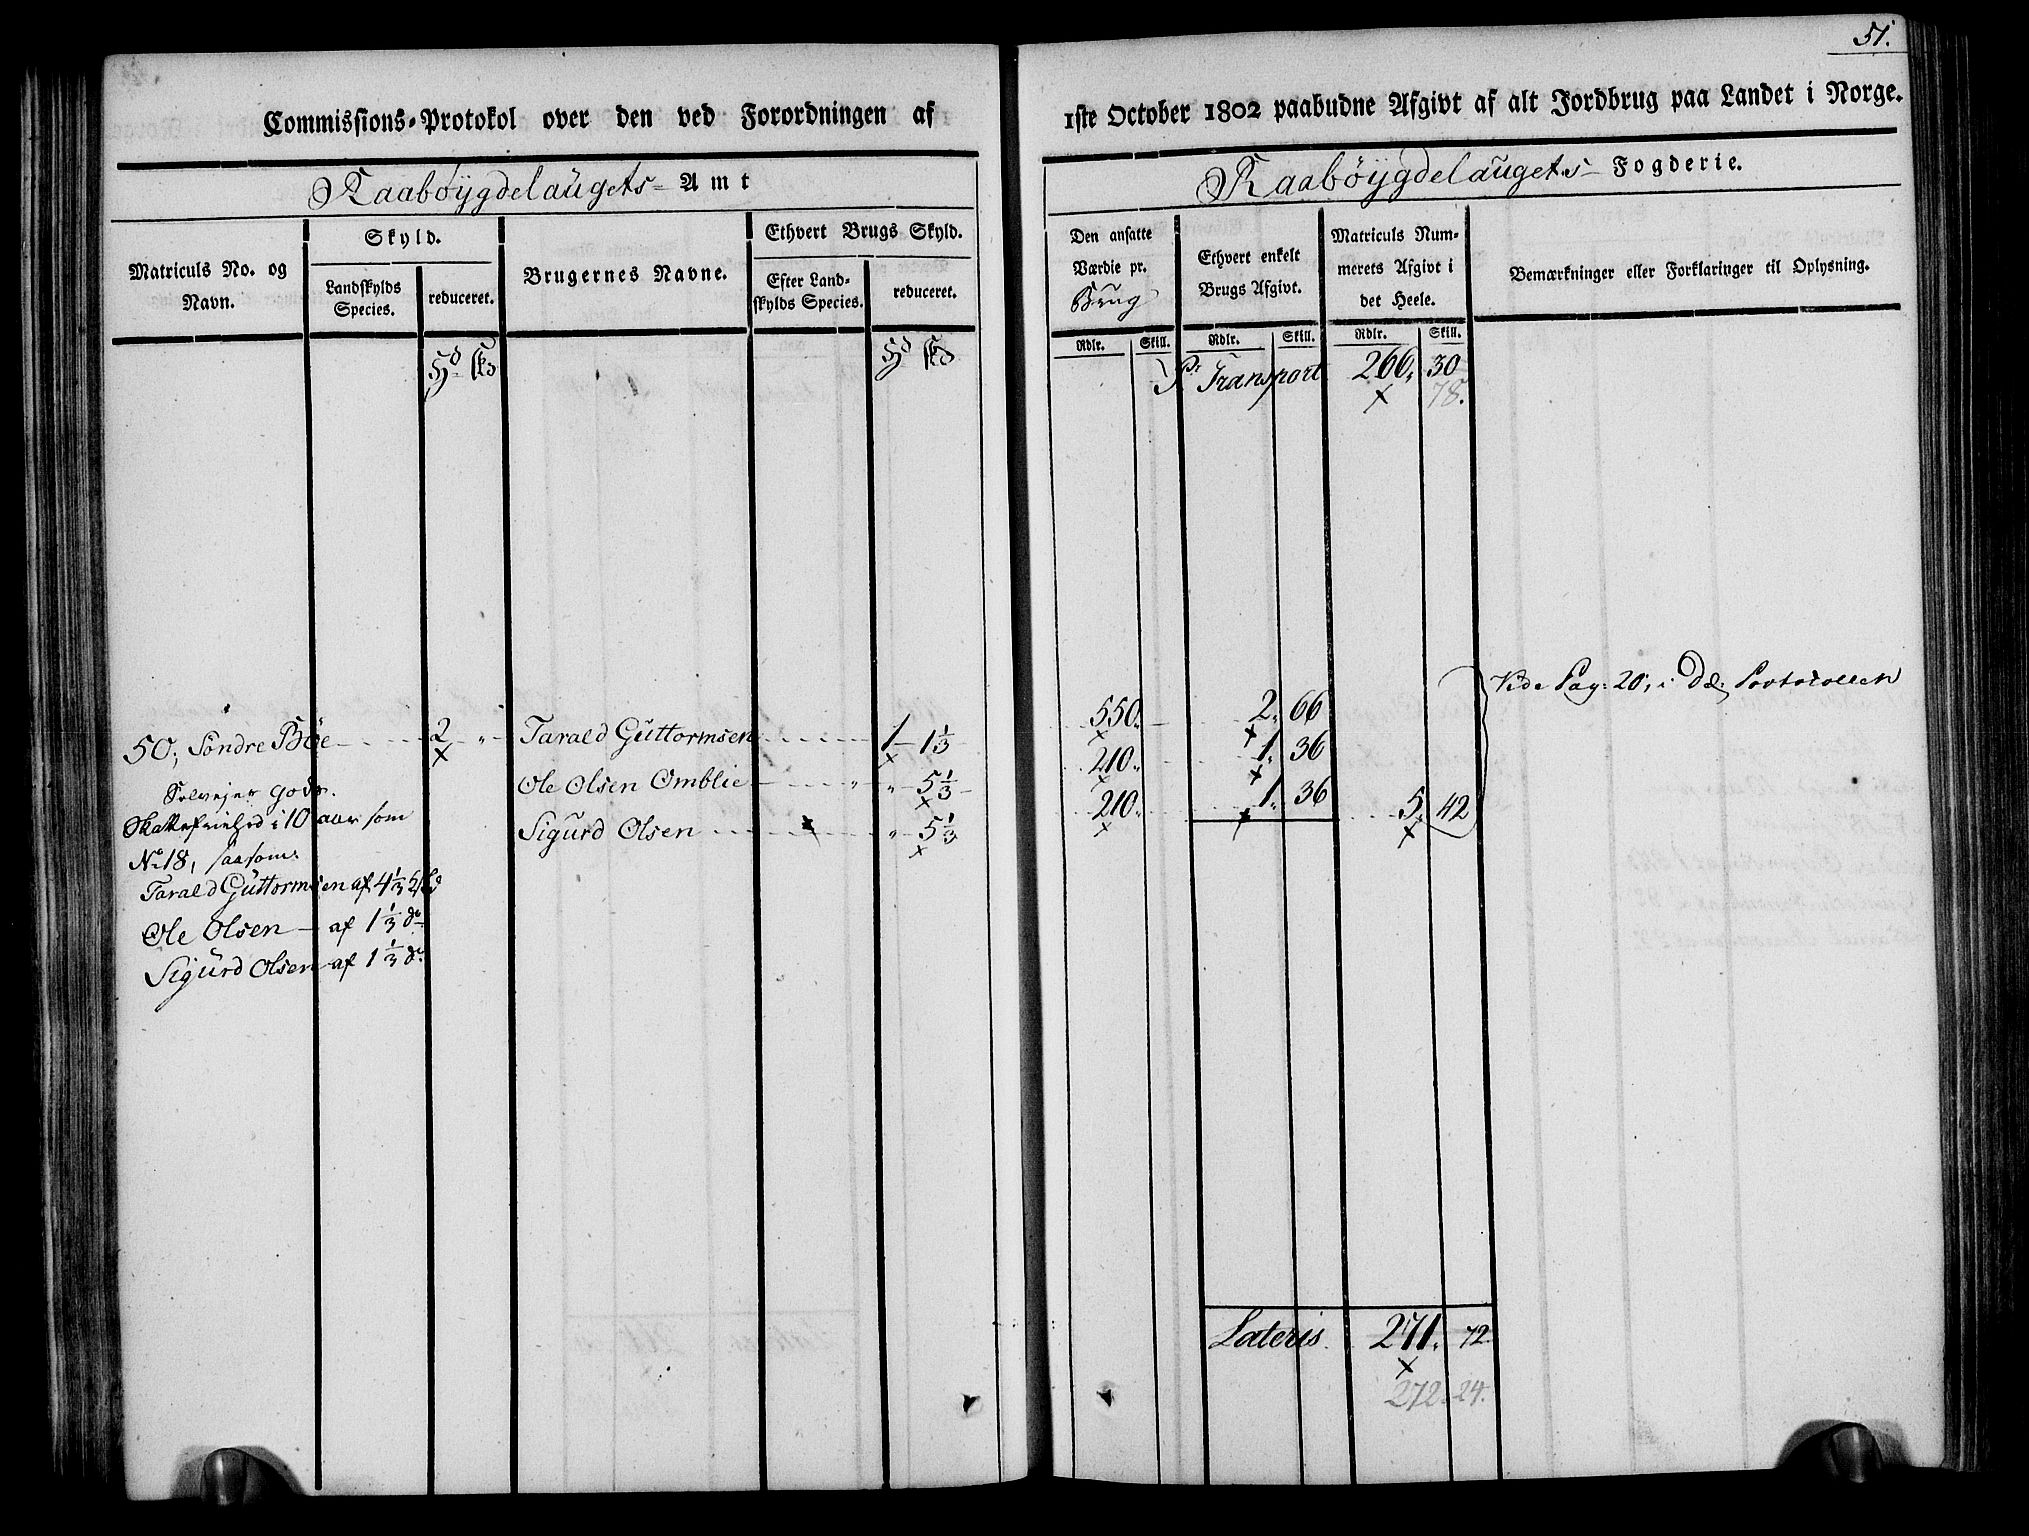 51.
Commissions-Protokol over den ved Forordningen af
1ste October 1802 paabudne Afgivt af alt Jordbrug paa Landet i Norge.
Raabøygdelaugets- Amt
Raabøygdelaugets- Fogderie.
Matriculs No. og Navn.
Skyld.
Landskylds Species.
reduceret.
Brugernes Navne.
Ethvert Brugs Skyld.
Efter Landskylds Species.
reduceret.
Den ansatte Værdie pr. Brug
Ethvert enkelt Brugs Afgivt.
Matriculs Nummerets Afgivt i det Heele.
Bemærkninger eller Forklaringer til Oplysning.
Rdlr. Skill. Rdlr. Skill. Rdlr. Skill.
Pr Transport 266, 30
78.
Vide Pag: 20, i
50, Søndre Bøe 2 " Tarald Guttormsen 1 - 1 1/3 550, 2, 66
Selvejer gods. Ole Olsen Omblie " 5 1/3 210, 1, 36
Skattefriehed i 10 aar som Sigurd Olsen " 5 1/3 210, 1, 36 5, 42
No 18, saasom:
Tarald Guttormsen af 4 1/3
Ole Olsen - af 1 1/3 do
Sigurd Olsen af 1 1/3 do
Lateris. 271, 72
272. 24.